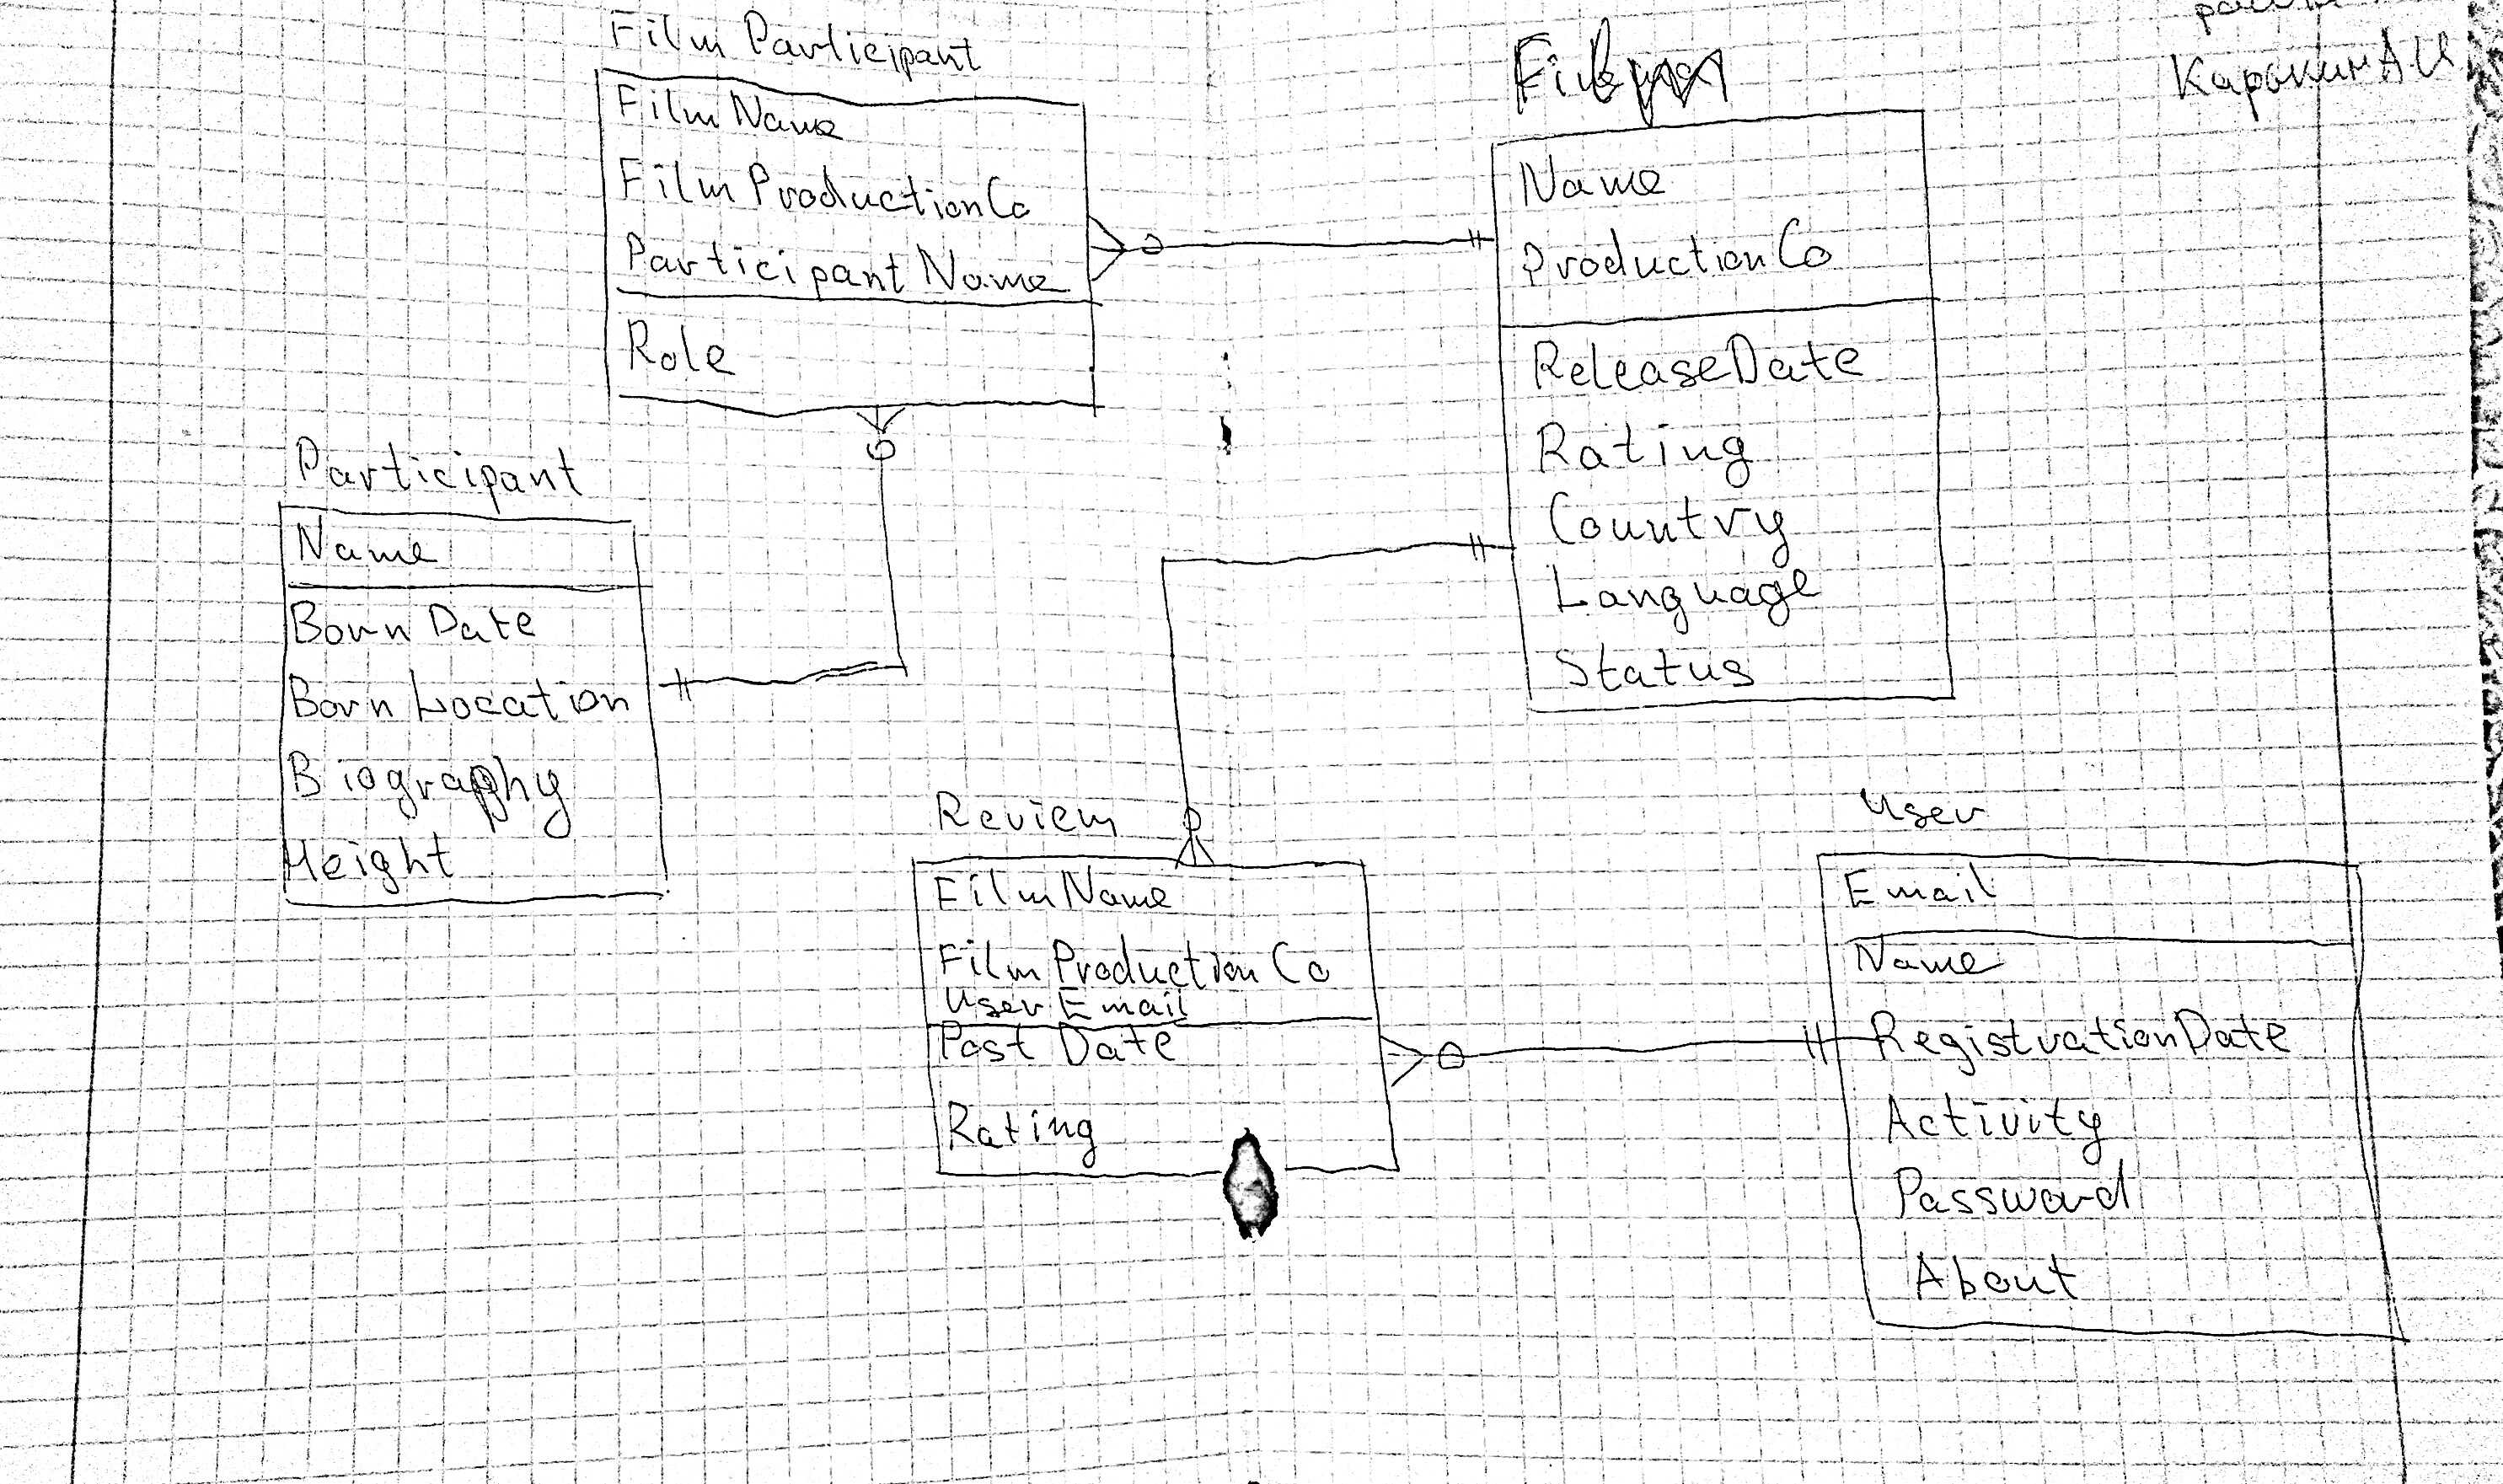 Film Participant
FilmName
FilmProductionCo
ParticipantName
Role
Name
ProductionCo
ReleaseDate
Rating
Country
Language
Status
Participant
Name
Born Date
Born Location
Biography
Height
Review
FilmName
FilmProductionCo
User Email
Post Date
Rating
User
Email
Name
RegistrationDate
Activity
Password
About